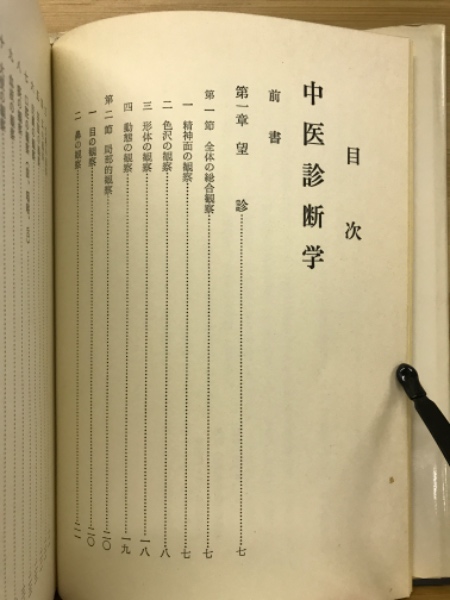 目次
中医診断学
前書
第一章 望 診……七
第一節 全体の総合観察……七
一 精神面の観察……七
二 色沢の観察……一八
三 形体の観察……一八
四 動態の観察……一九
第二節 局部的観察……二〇
一 目の観察……二〇
二 鼻の観察……二一